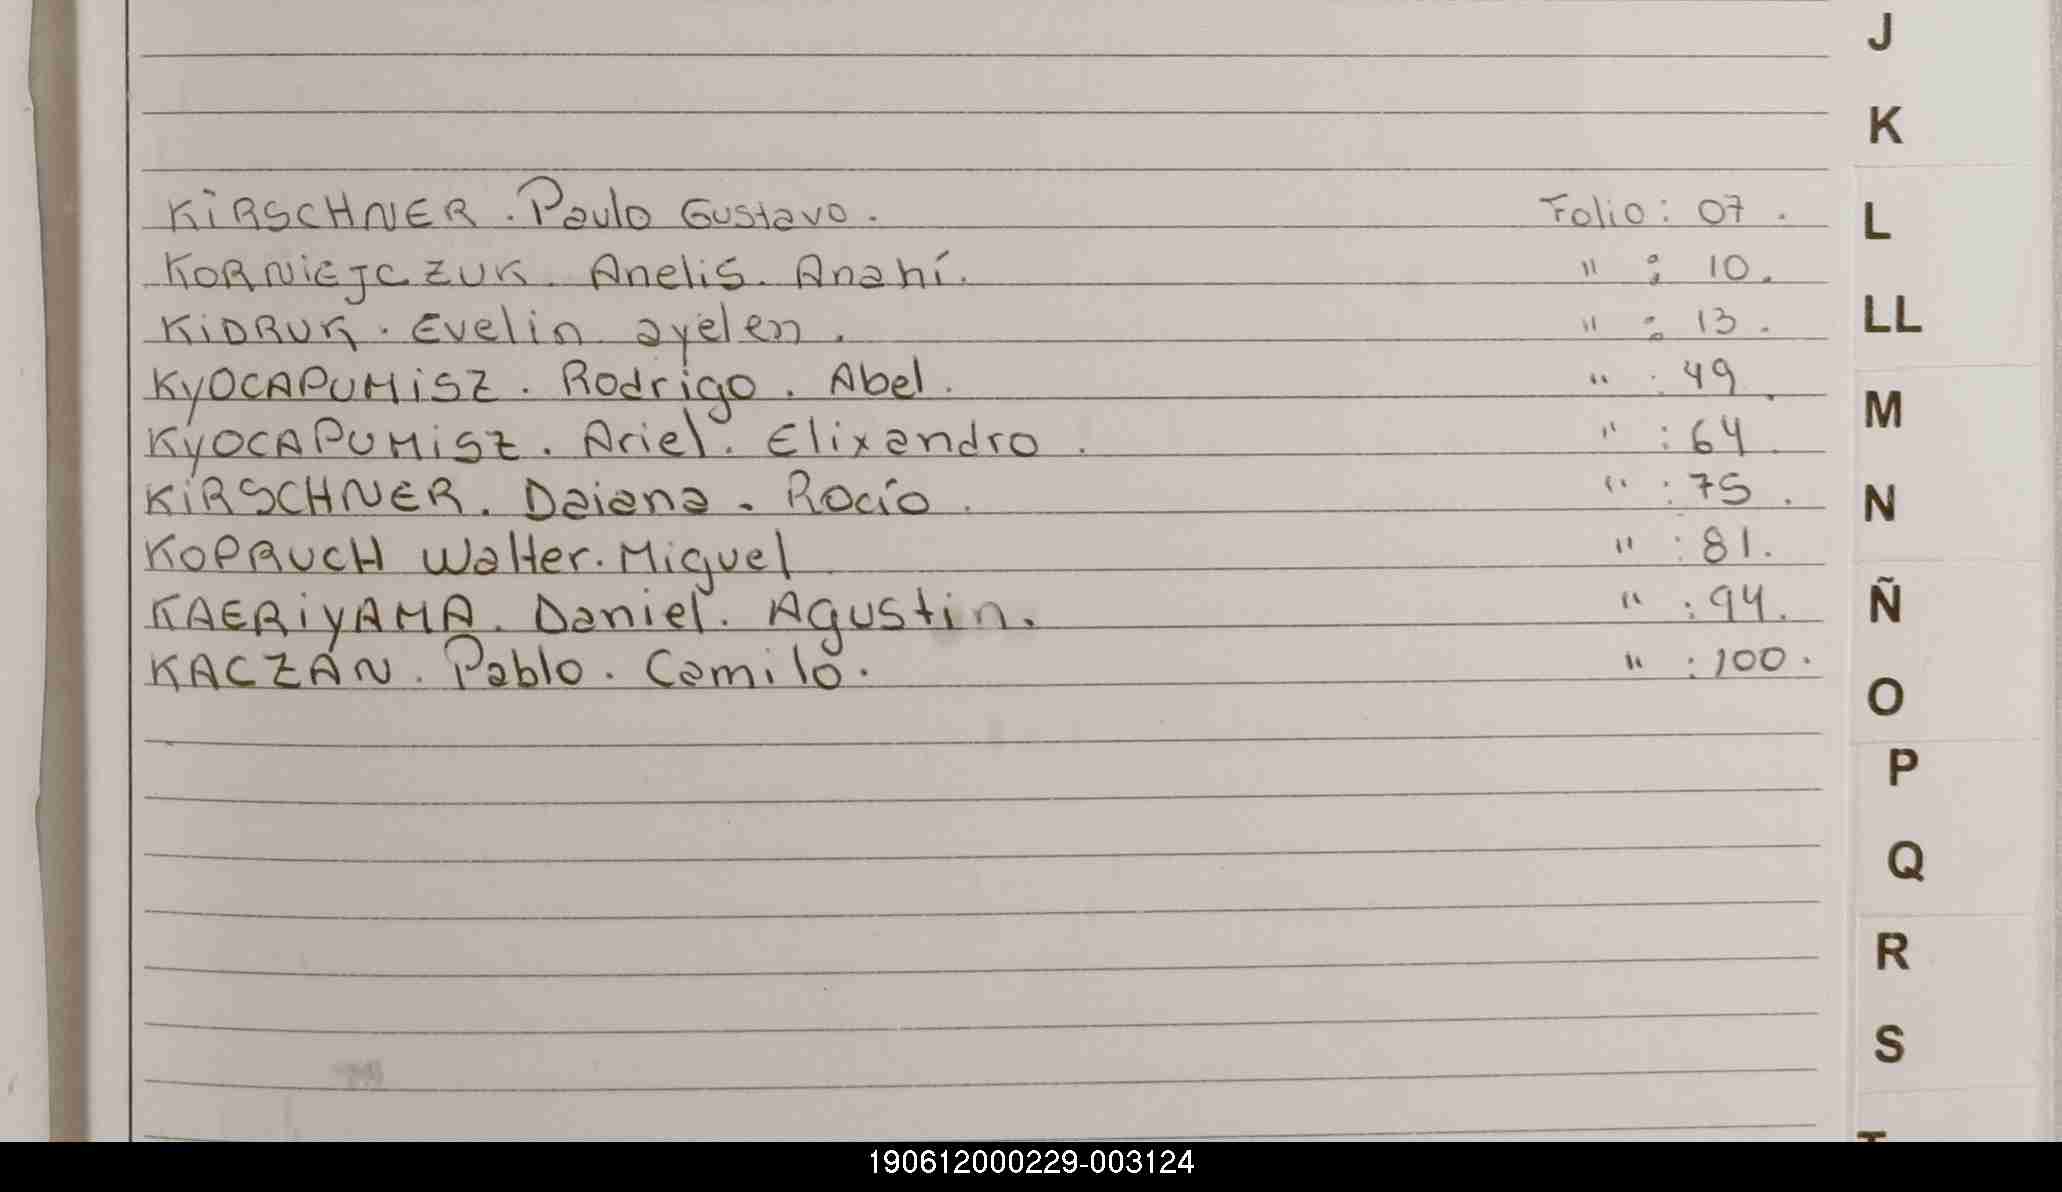 KiRSCHNER . Paulo Gustavo. Folio : 07 .
KORNiEJCZUK. Anelis. Anahí. " : 10.
KiDRUK. Evelin ayelen. " : 13 .
KyOCAPUMiSZ. Rodrigo. Abel. " : 49.
KyOCAPUMiSZ. Ariel. Elixandro. " : 64.
KiRSCHNER. Daiana. Rocío. " : 75 .
KOPRUCH Walter. Miguel " : 81.
KAERiyAMA. Daniel. Agustin. " : 94.
KACZAN. Pablo. Camilo. " : 100.
J
K
L
LL
M
N
Ñ
O
P
Q
R
S
190612000229-003124